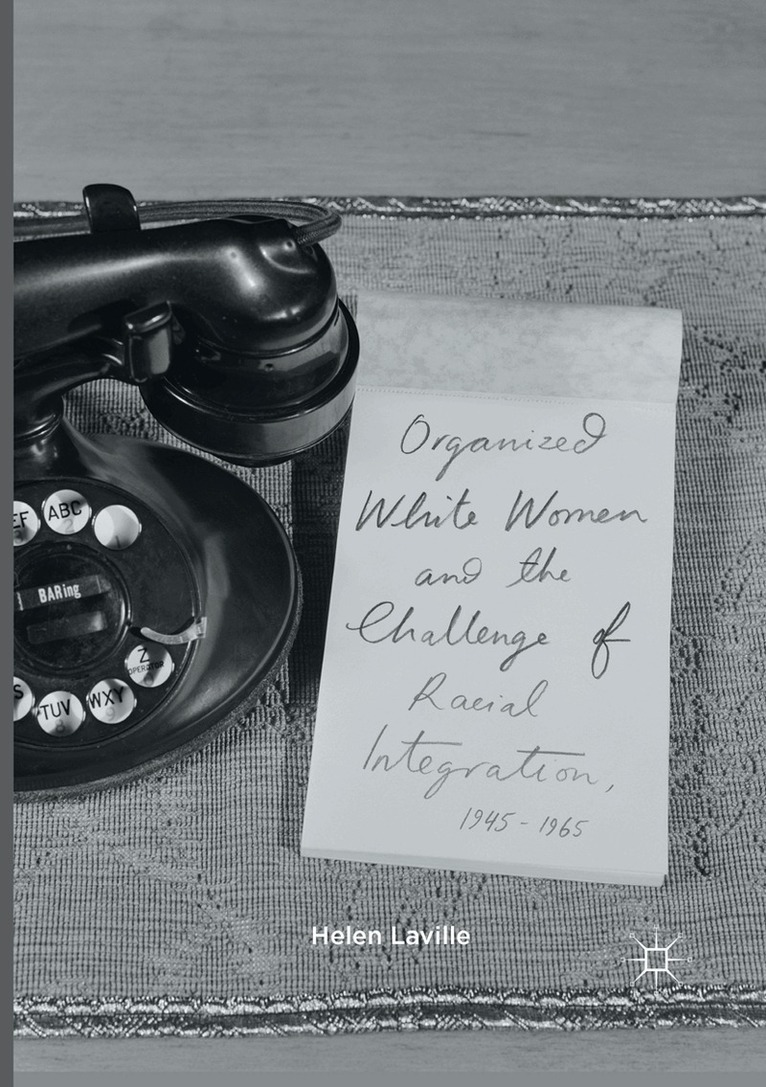 EF ABC
BARing
Z
OPERATOR
S TUV WXY
Organized
White Women
and the
Challenge of
Racial
Integration,
1945-1965
Helen Laville